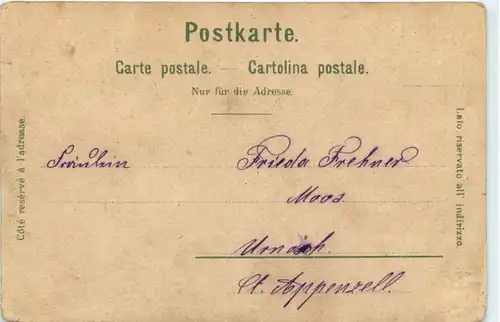 Postkarte.
Carte postale. — Cartolina postale.
Nur für die Adresse.
Côté reservé à l'adresse.
Lato riservato all' indirizzo.
Fräulein Frieda Frehner
Moos
Urnäsch.
Ct. Appenzell.